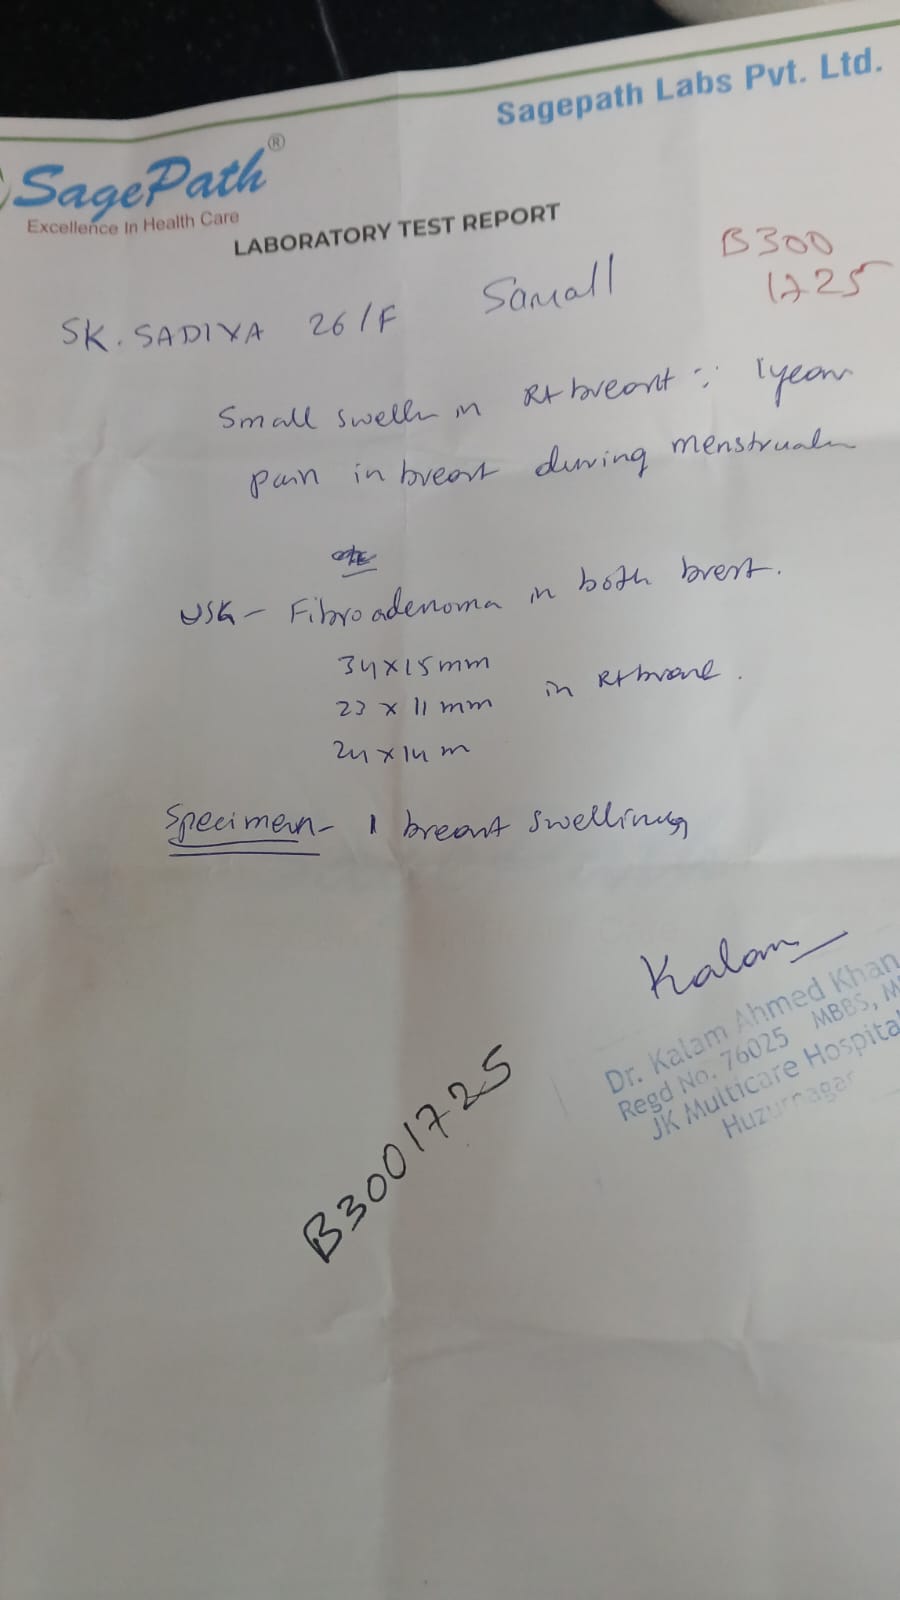 Sagepath Labs Pvt. Ltd.
SagePath®
Excellence In Health Care
LABORATORY TEST REPORT
B300
1725
SK. SADIYA 26/F Samall
Small swelln in Rt breast : 1 year
pain in breast during menstrualn
USG - Fibroadenoma in both brest.
34 x 15 mm
23 x 11 mm in Rt
24 x 14 m
Specimen - 1 breast swelling
Kalam
Dr. Kalam Ahmed Khan
Regd No. 76025 MBBS, M
JK Multicare Hospital
Huzurnagar
B3001725